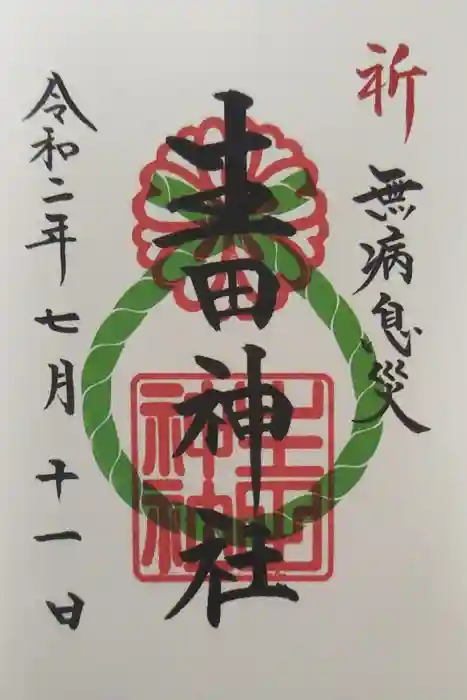 祈 無病息災
生田神社
生田
神社
令和二年 七月 十一日